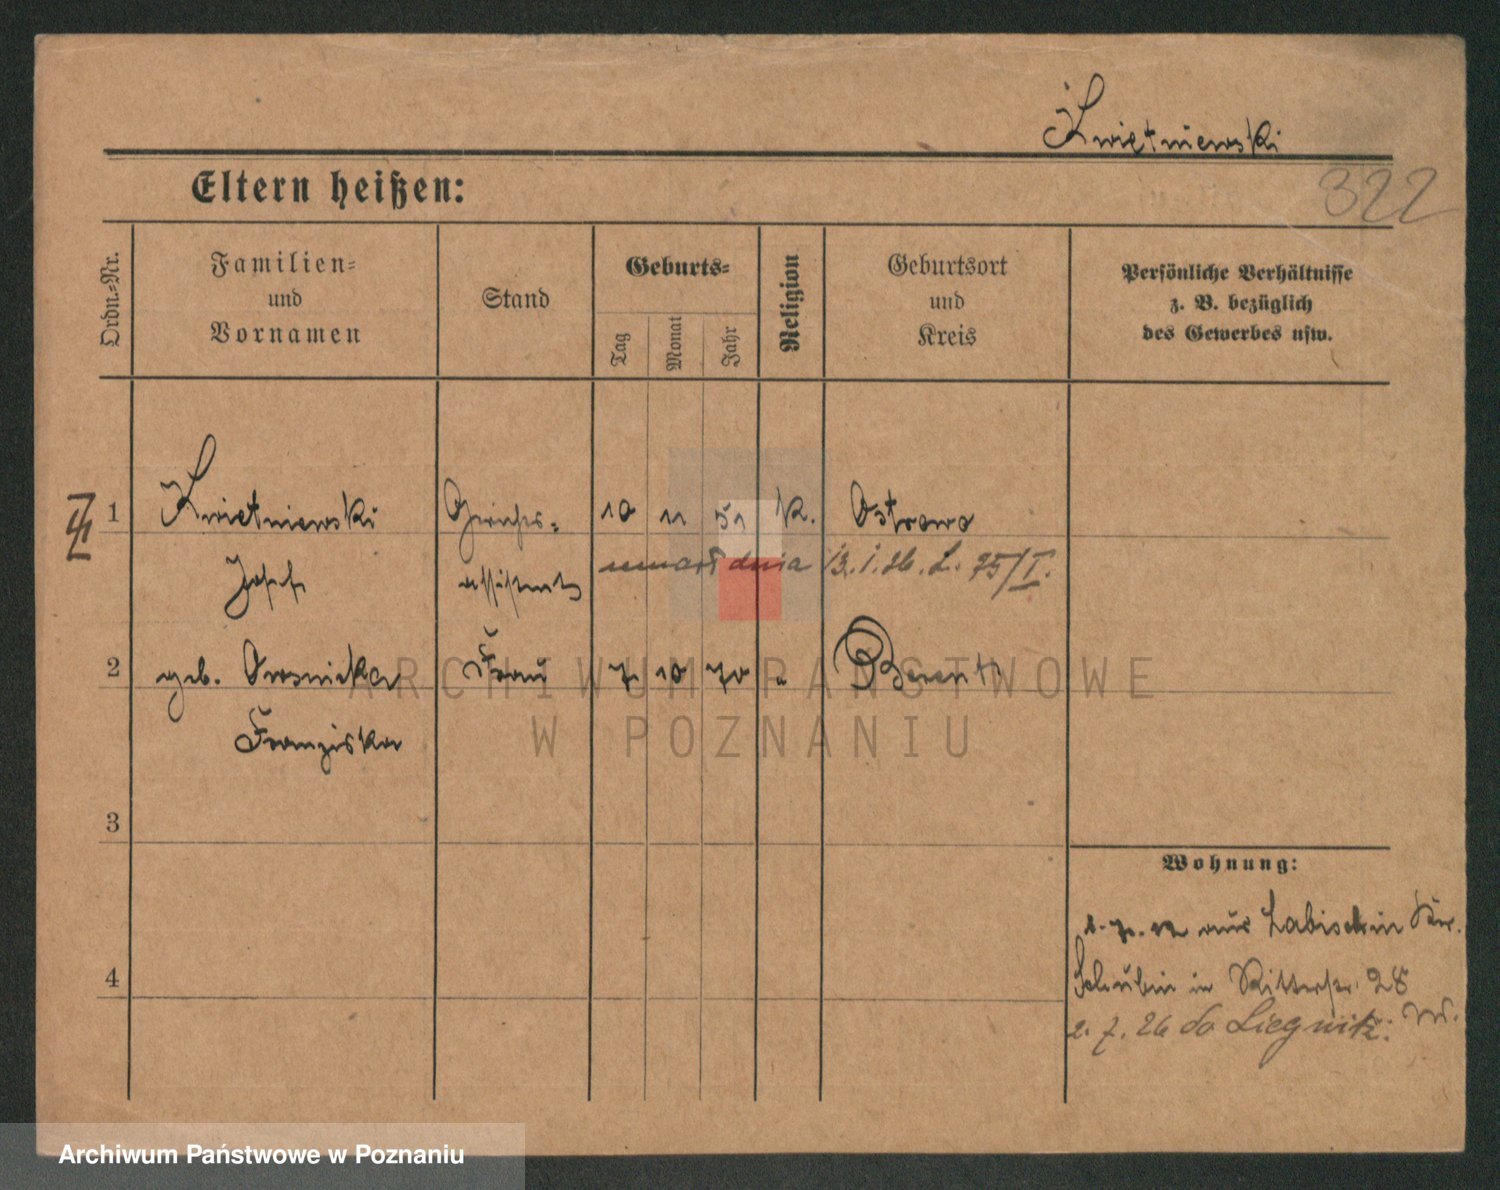 Kwiętniewski
Eltern heißen:
322
Ordn.-Nr.
Familien-
und
Vornamen
Stand
Geburts-
Tag
Monat
Jahr
Religion
Geburtsort
und
Kreis
Persönliche Verhältnisse
z. B. bezüglich
des Gewerbes usw.
1
Kwietniewski
Gerichts-
10
11
51
K.
Ostrowo
Josef
assistent
umarł dnia 13.1.26. L. 75/I.
2
geb.
Franziska
Frau
7.
10
70
"
Berent
3
4
Wohnung:
aus Labischin Kr.
Schubin in Ritterstr. 28
2.7.26 do Liegnitz.
ARCHIWUM PAŃSTWOWE
W POZNANIU
Archiwum Państwowe w Poznaniu